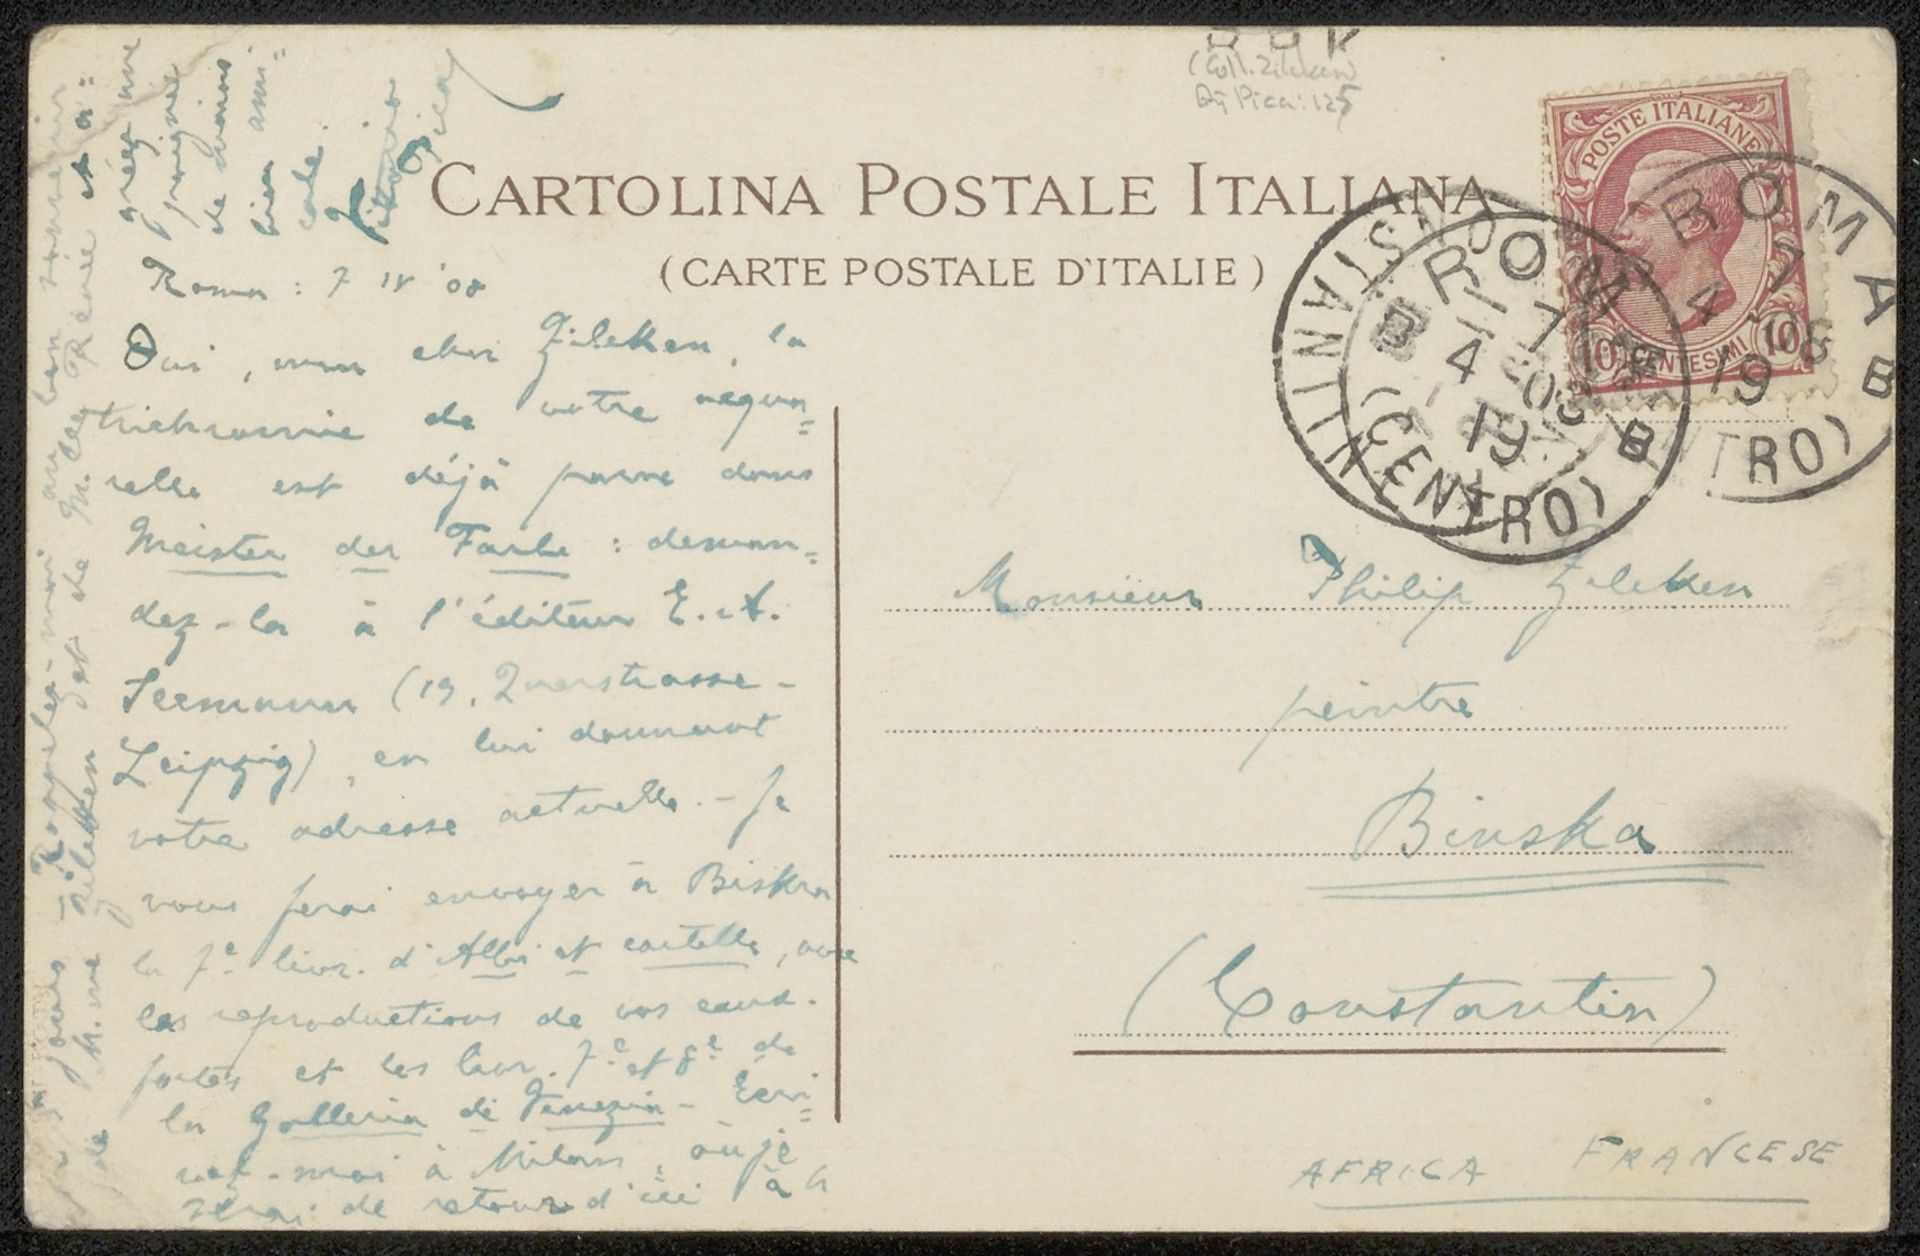 (Coll. Zilcken
Bij Pica: 125
CARTOLINA POSTALE ITALIANA
(CARTE POSTALE D'ITALIE)
POSTE ITALIANE
10 CENTESIMI 10
ROMA
7
4-08
19
B
(CENTRO)
ROMA
7
4-08
19
B
TRO)
Roma: 7 IV '08
Oui, mon cher Zilcken, la
trichromie de votre aqua=
relle est déjà parue dans
Meister der Farbe: deman=
dez-la à l'éditeur E. A.
Seemann (19, Querstrasse-
Leipzig), en lui donnant
votre adresse actuelle. - Je
vous ferai envoyer à Biskra
la 7e livr. d'Albi et cartelle, avec
les reproductions de vos eaux-
fortes et les livr. 7e et 8e de
la Galleria di Venezia - Écri=
vez-moi à Milan, où je
serai de retour d'ici à 4
jours - Rappelez-moi au bon souvenir
de M.me Zilcken et de M.lle Renée et a=
gréez une
poignée
de mains
bien ami=
cale.
Vittorio
Pica
Monsieur Philip Zilcken
peintre
Biuska
(Constantin)
AFRICA FRANCESE